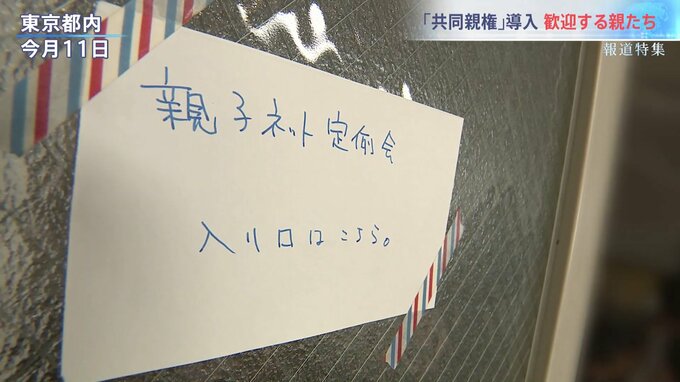 東京都内
今月11日
「共同親権」導入 歓迎する親たち
報道特集
親子ネット定例会
入り口はこちら。